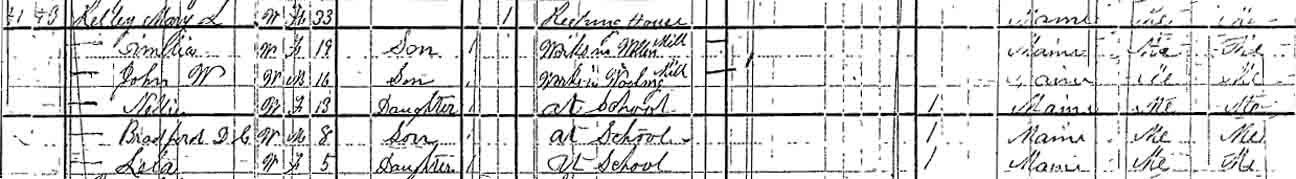 Kelley Mary L W F 33 1 Keeping House Maine Me Me
— W F 19 Son / Works in Wlln Mill / Maine Me Me
— John W W M 16 Son / Works in Woolng Mill Maine Me Me
— Nellie W F 13 Daughter / at School 1 Maine Me Me
— Bradford D C W M 8 Son / at School 1 Maine Me Me
— Lela W F 5 Daughter / At School 1 Maine Me Me